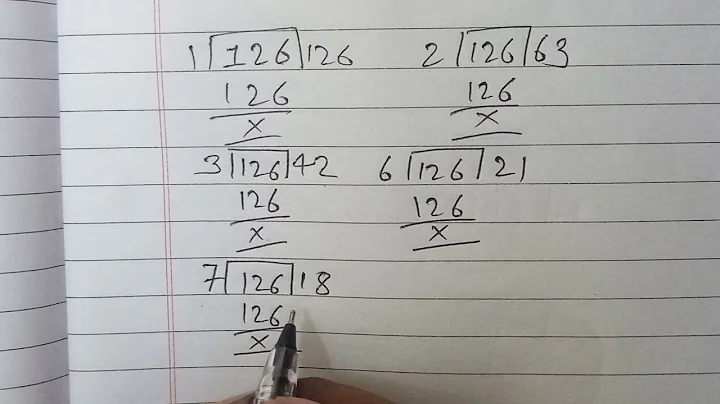 1 126 126 2 126 63
126 126
x x
3 126 42 6 126 21
126 126
x x
7 126 18
126
x